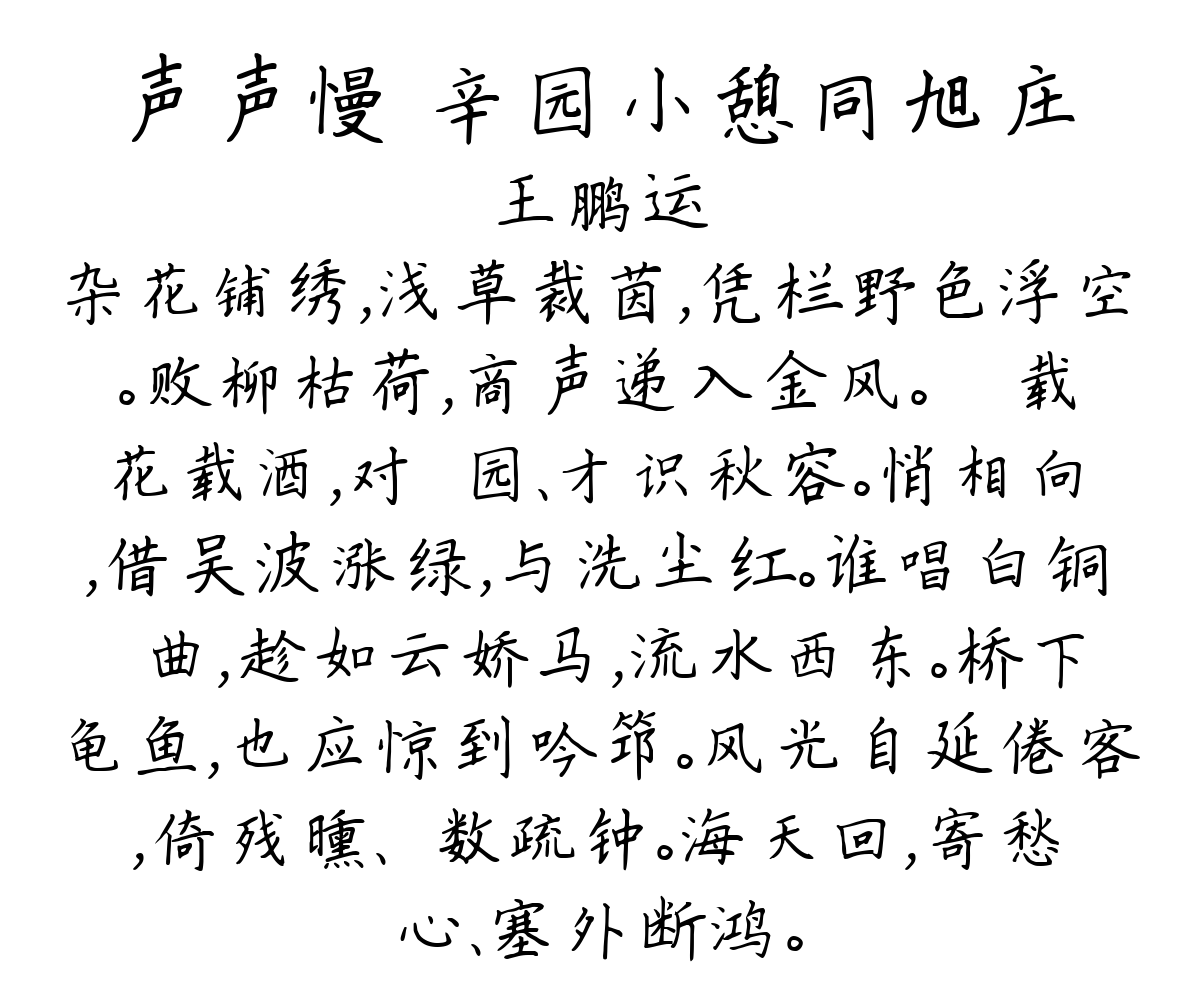 声声慢 辛园小憩同旭庄
王鹏运
杂花铺绣,浅草裁茵,凭栏野色浮空
。败柳枯荷,商声递入金风。 载
花载酒,对 园、才识秋容。悄相向
,借吴波涨绿,与洗尘红。谁唱白铜
曲,趁如云娇马,流水西东。桥下
龟鱼,也应惊到吟筇。风光自延倦客
,倚残曛、数疏钟。海天回,寄愁
心、塞外断鸿。